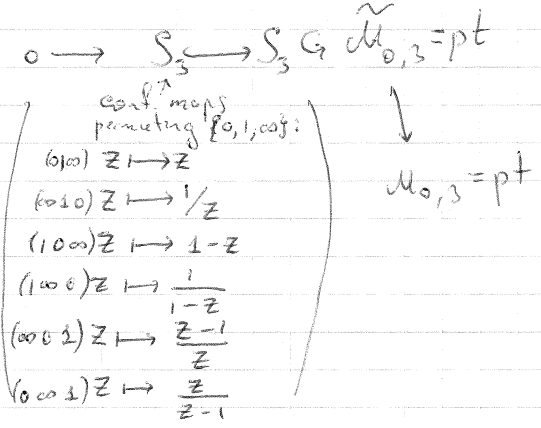 0 → S₃ ↔ S₃ G M̃₀,₃ = pt
conf. maps
permuting {0,1,∞}:
(01∞) z ↦ z
(∞10) z ↦ 1/z
(10∞) z ↦ 1-z
(1∞0) z ↦ 1/(1-z)
(∞01) z ↦ (z-1)/z
(0∞1) z ↦ z/(z-1)
M₀,₃ = pt